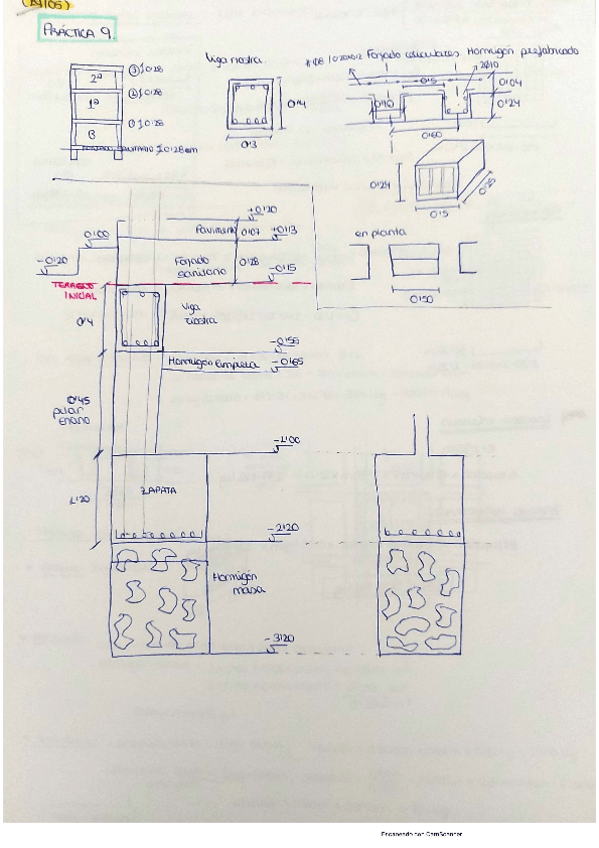 (29/05)
PRÁCTICA 9.
Viga riostra.
Forjado reticulares Hormigón prefabricado
2ª
③ ∫ 0'28
1ª
② ∫ 0'28
B
① ∫ 0'28
0'4
0'3
0'15
2Ø10
0'04
0'10
0'24
0'60
0'24
0'25
0'15
en planta
0'50
+0'20
Pavimento
0'07
+0'13
0'00
-0'20
Forjado
sanitario
0'28
-0'15
TERRENO
INICIAL
0'4
Viga
riostra
-0'55
Hormigón limpieza
-0'65
0'45
pilar
enano
-1'00
1'20
ZAPATA
-2'20
Hormigón
masa
-3'20
Escaneado con CamScanner